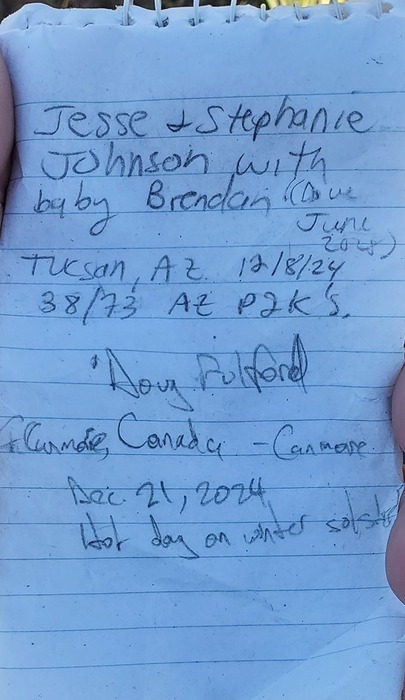 Jesse & Stephanie
Johnson with
baby Brendan (Due
June
2025)
Tucson, AZ 12/8/24
38/73 AZ P2K's.
Doug Fulford
Canmore, Canada - Canmore
Dec 21, 2024
Hot day on winter solstice